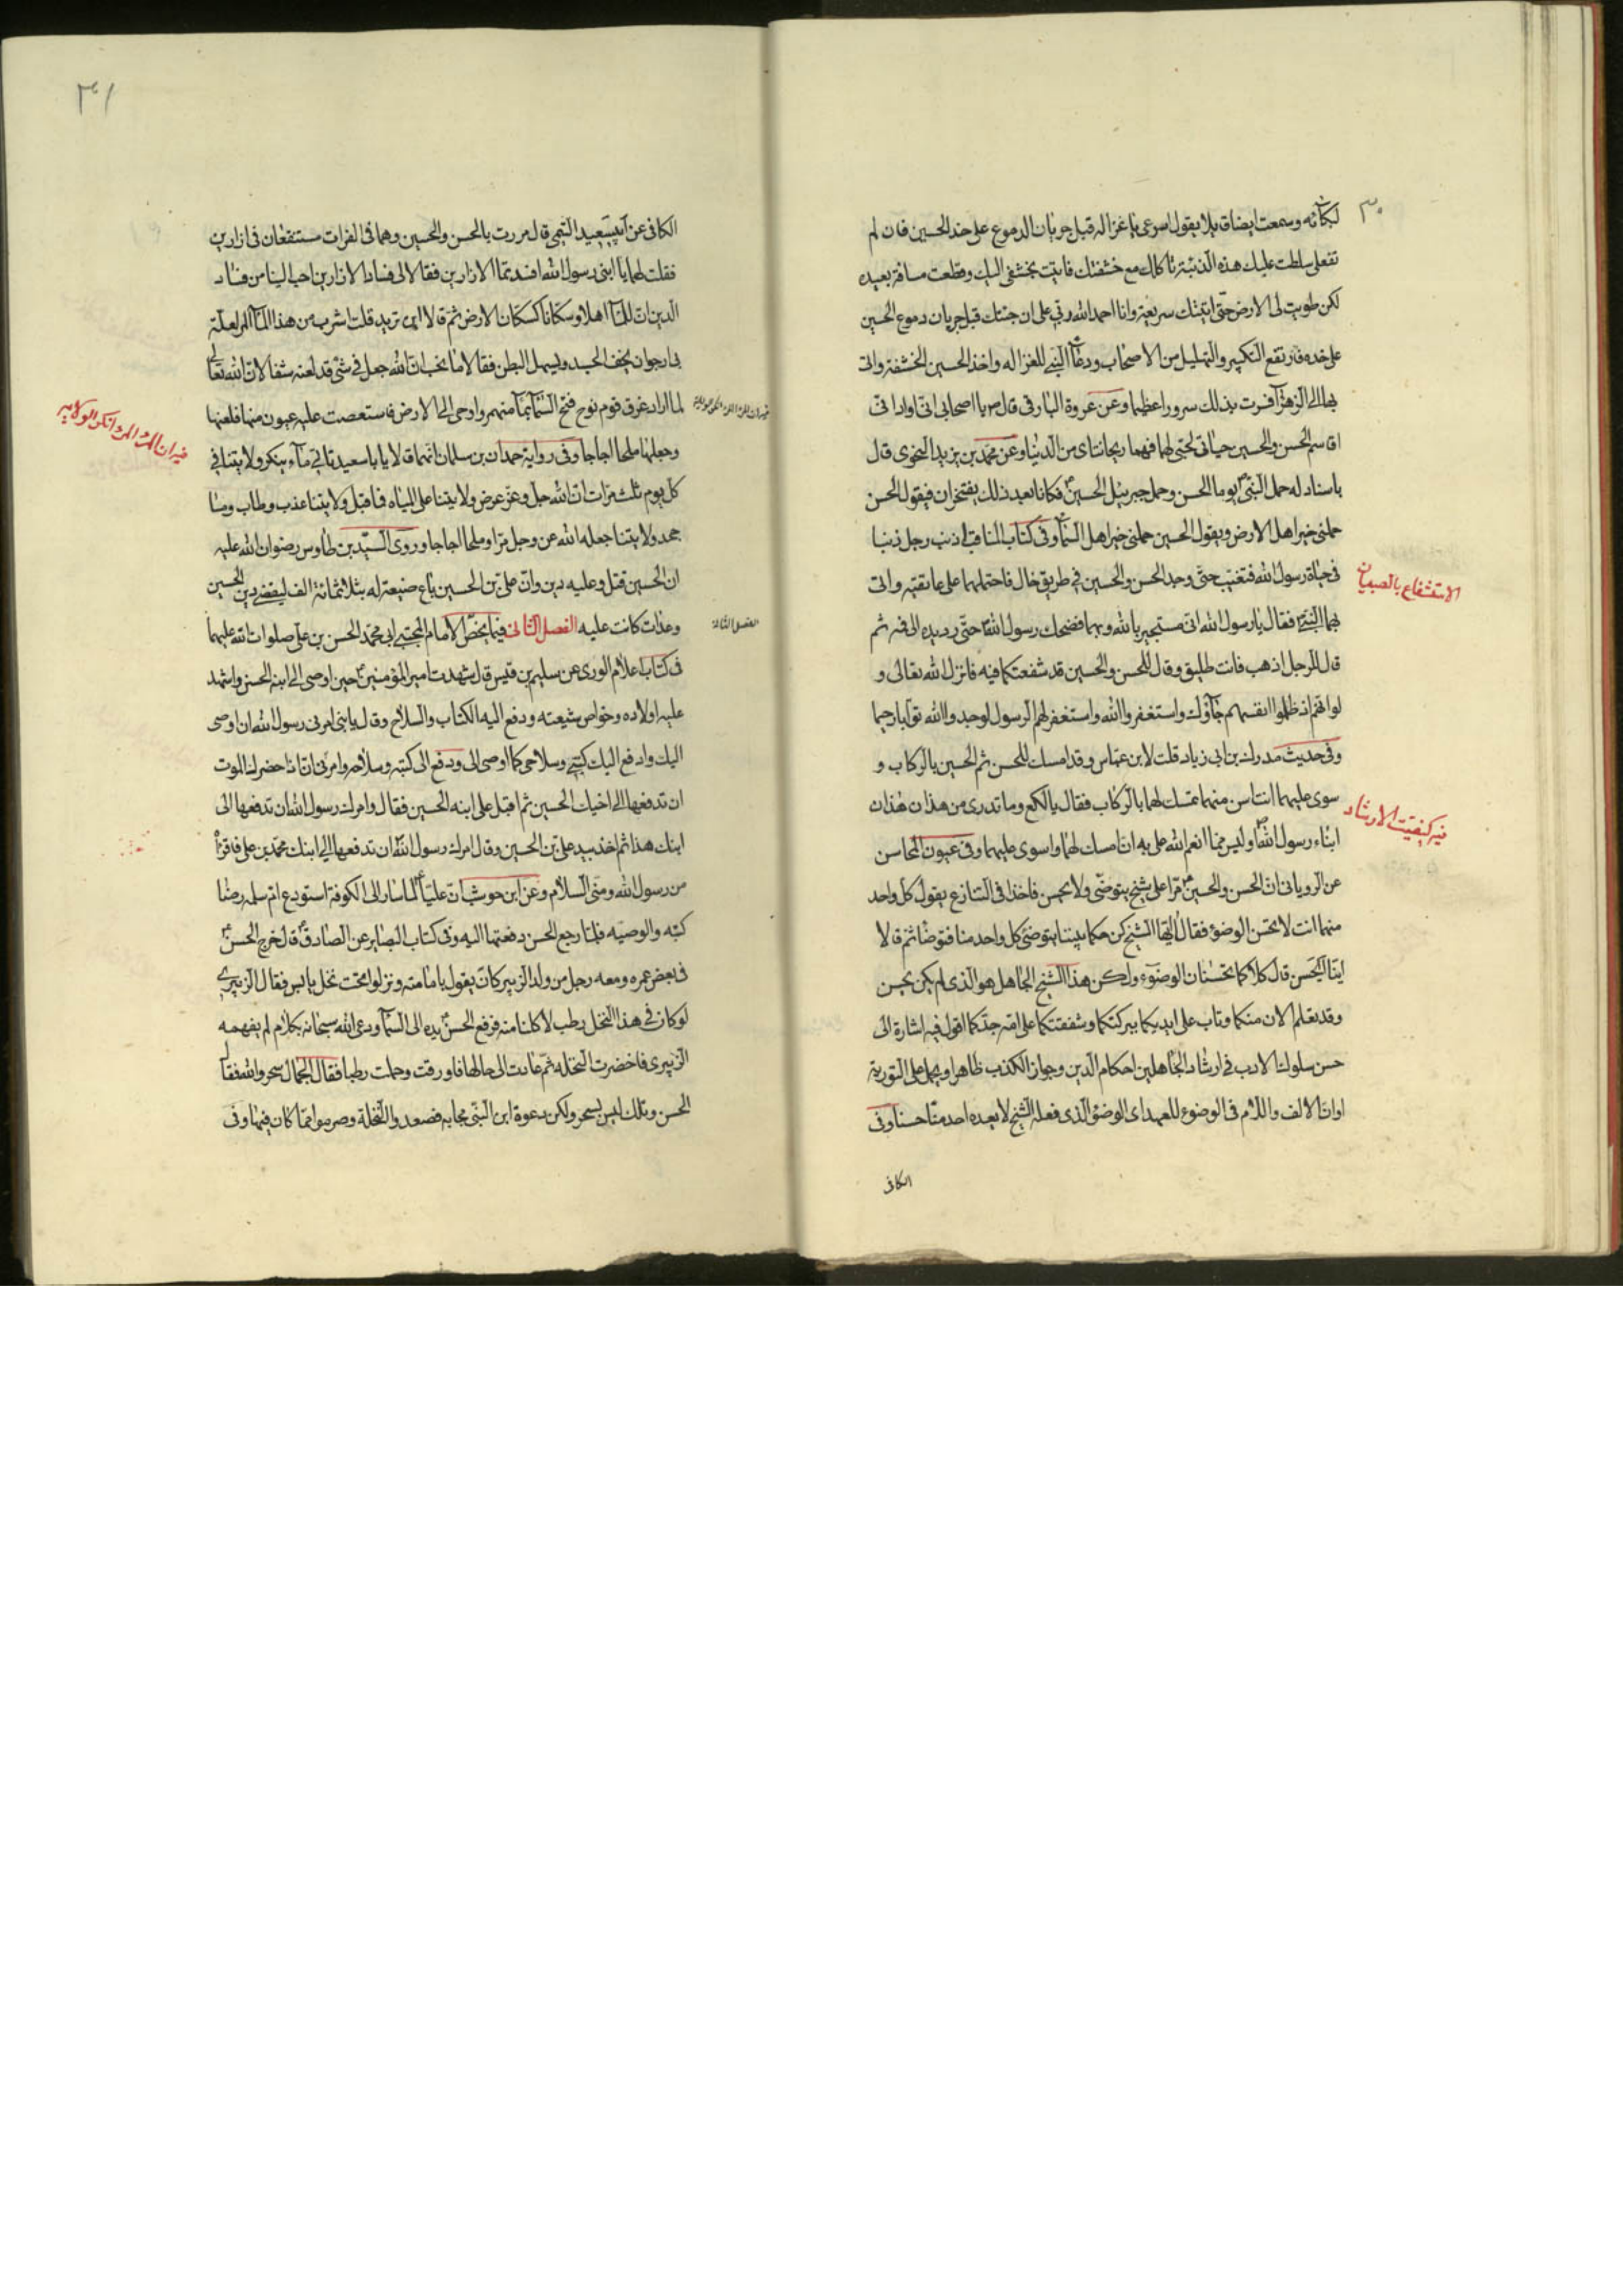 ٣٠
لبكائه وسمعت ايضا قائلا يقول اسرعى يا غزاله قبل جريان الدموع على خد الحسين فان لم
تفعلى سلطت عليك هذه الذئبة تاكلك مع خشفتك فاتيت بخشفى اليك وقطعت مسافة بعيده
لكن طويت لى الارض حتى اتيتك سريعة وانا احمد الله ربى على ان جئتك قبل جريان دموع الحسين
على خده فارتفع التكبير والتهليل من الاصحاب ودعا النبى للغزاله واخذ الحسين الخشفة واتى
بها الى الزهرا فسرت بذلك سرورا عظيما وعن عروة البارقى قال يا اصحابى انى اود انى
اقاسم الحسن والحسين حياتى لحبى لهما فهما ريحانتاى من الدنيا وعن محمد بن يزيد النحوى قال
باسناد له حمل النبى يوما الحسن وحمل جبرئيل الحسين فكانا بعد ذلك يفتخران فيقول الحسن
حملنى خير اهل الارض ويقول الحسين حملنى خير اهل السما وفى كتاب المناقب اذنب رجل ذنبا
فى حياة رسول الله فتغيب حتى وجد الحسن والحسين فى طريق خال فاحتملهما على عاتقيه واتى
الاستشفاع بالصبيان
بهما النبى فقال يا رسول الله انى مستجير بالله وبهما فضحك رسول الله حتى رد يده الى فمه ثم
قال للرجل اذهب فانت طليق وقال للحسن والحسين قد شفعتكما فيه فانزل الله تعالى و
لو انهم اذ ظلموا انفسهم جآؤك واستغفروا الله واستغفر لهم الرسول لوجدوا الله توابا رحيما
وفى حديث مدرك بن ابى زياد قلت لابن عباس وقد امسك للحسن ثم الحسين بالركاب و
سوى عليهما انت اسن منهما تمسك لهما بالركاب فقال يا لكع وما تدرى من هذان هذان
فيه كيفيت الارشاد
ابناء رسول الله وليس مما انعم الله على به ان امسك لهما واسوى عليهما وفى عيون المحاسن
عن الرويانى ان الحسن والحسين مرا على شيخ يتوضى ولا يحسن فاخذا فى التنازع يقول كل واحد
منهما انت لا تحسن الوضوء فقال ايها الشيخ كن حكما بيننا يتوضى كل واحد منا فتوضا ثم قالا
اينا يحسن قال كلاكما تحسنان الوضوء ولكن هذا الشيخ الجاهل هو الذى لم يكن يحسن
وقد تعلم الان منكما وتاب على ايديكما ببركتكما وشفقتكما على امة جدكما اقول فيه اشارة الى
حسن سلوك الادب فى ارشاد الجاهلين احكام الدين وجواز الكذب ظاهرا ويحمل على التورية
او ان الالف واللام فى الوضوء للعهد اى الوضوء الذى فعله الشيخ لا يعده احد منا حسنا وفى
الكافى
٣١
الكافى عن ابى سعيد التيمى قال مررت بالحسن والحسين وهما فى الفرات مستنقعان فى ازارين
فقلت لهما يا ابنى رسول الله افسدتما الازارين فقالا لى فساد الازارين احب الينا من فساد
الدين ان للمآ اهلا وسكانا كسكان الارض ثم قالا اين تريد قلت اشرب من هذا المآ المر لعلة
بى ارجو ان يخف الجسد ويسهل البطن فقالا ما نحب ان الله جعل فى شى قد لعنه شفا لان الله تعالى
لما اراد غرق قوم نوح فتح السمآ بمآ منهمر واوحى الى الارض فاستعصت عليه عيون منها فلعنها
فيه ان الماء المر انكر الولايه
وجعلها ملحا اجاجا وفى رواية حمدان بن سلمان انهما قالا يا باسعيد تاتى مآء ينكر ولايتنا فى
كل يوم ثلث مرات ان الله جل وعز عرض ولايتنا على المياه فما قبل ولايتنا عذب وطاب وما
جحد ولايتنا جعله الله عز وجل مرا وملحا اجاجا وروى السيد بن طاوس رضوان الله عليه
ان الحسين قتل وعليه دين وان على بن الحسين باع ضيعة له بثلاثمائة الف ليقضى دين الحسين
وعدات كانت عليه الفصل الثانى فيما يختص الامام المجتبى ابى محمد الحسن بن على صلوات الله عليهما
فى كتاب اعلام الورى عن سليم بن قيس قال شهدت امير المؤمنين حين اوصى الى ابنه الحسن واشهد
عليه اولاده وخواص شيعته ودفع اليه الكتاب والسلاح وقال يا بنى امرنى رسول الله ان اوصى
اليك وادفع اليك كتبى وسلاحى كما اوصى الى ودفع الى كتبه وسلاحه وامرنى ان اذا حضرك الموت
ان تدفعها الى اخيك الحسين ثم اقبل على ابنه الحسين فقال وامرك رسول الله ان تدفعها الى
ابنك هذا ثم اخذ بيد على بن الحسين وقال امرك رسول الله ان تدفعها الى ابنك محمد بن على فاقراه
من رسول الله ومنى السلام وعن ابن حوشب ان عليا لما سار الى الكوفة استودع ام سلمه رضا
كتبه والوصيه فلما رجع الحسن دفعتها اليه وفى كتاب البصاير عن الصادق قال خرج الحسن
فى بعض عمره ومعه رجل من ولد الزبير كان يقول بامامته ونزلوا تحت نخل يابس فقال الزبيرى
لو كان فى هذا النخل رطب لاكلنا منه فرفع الحسن يده الى السمآ ودعى الله سبحانه بكلام لم يفهمه
الزبيرى فاخضرت النخله ثم عادت الى حالها فاورقت وحملت رطبا فقال الجمال سحر والله فقال
الحسن ويلك ليس بسحر ولكن دعوة ابن النبى مجابه فصعدوا النخلة وصرموا مما كان فيها وفى